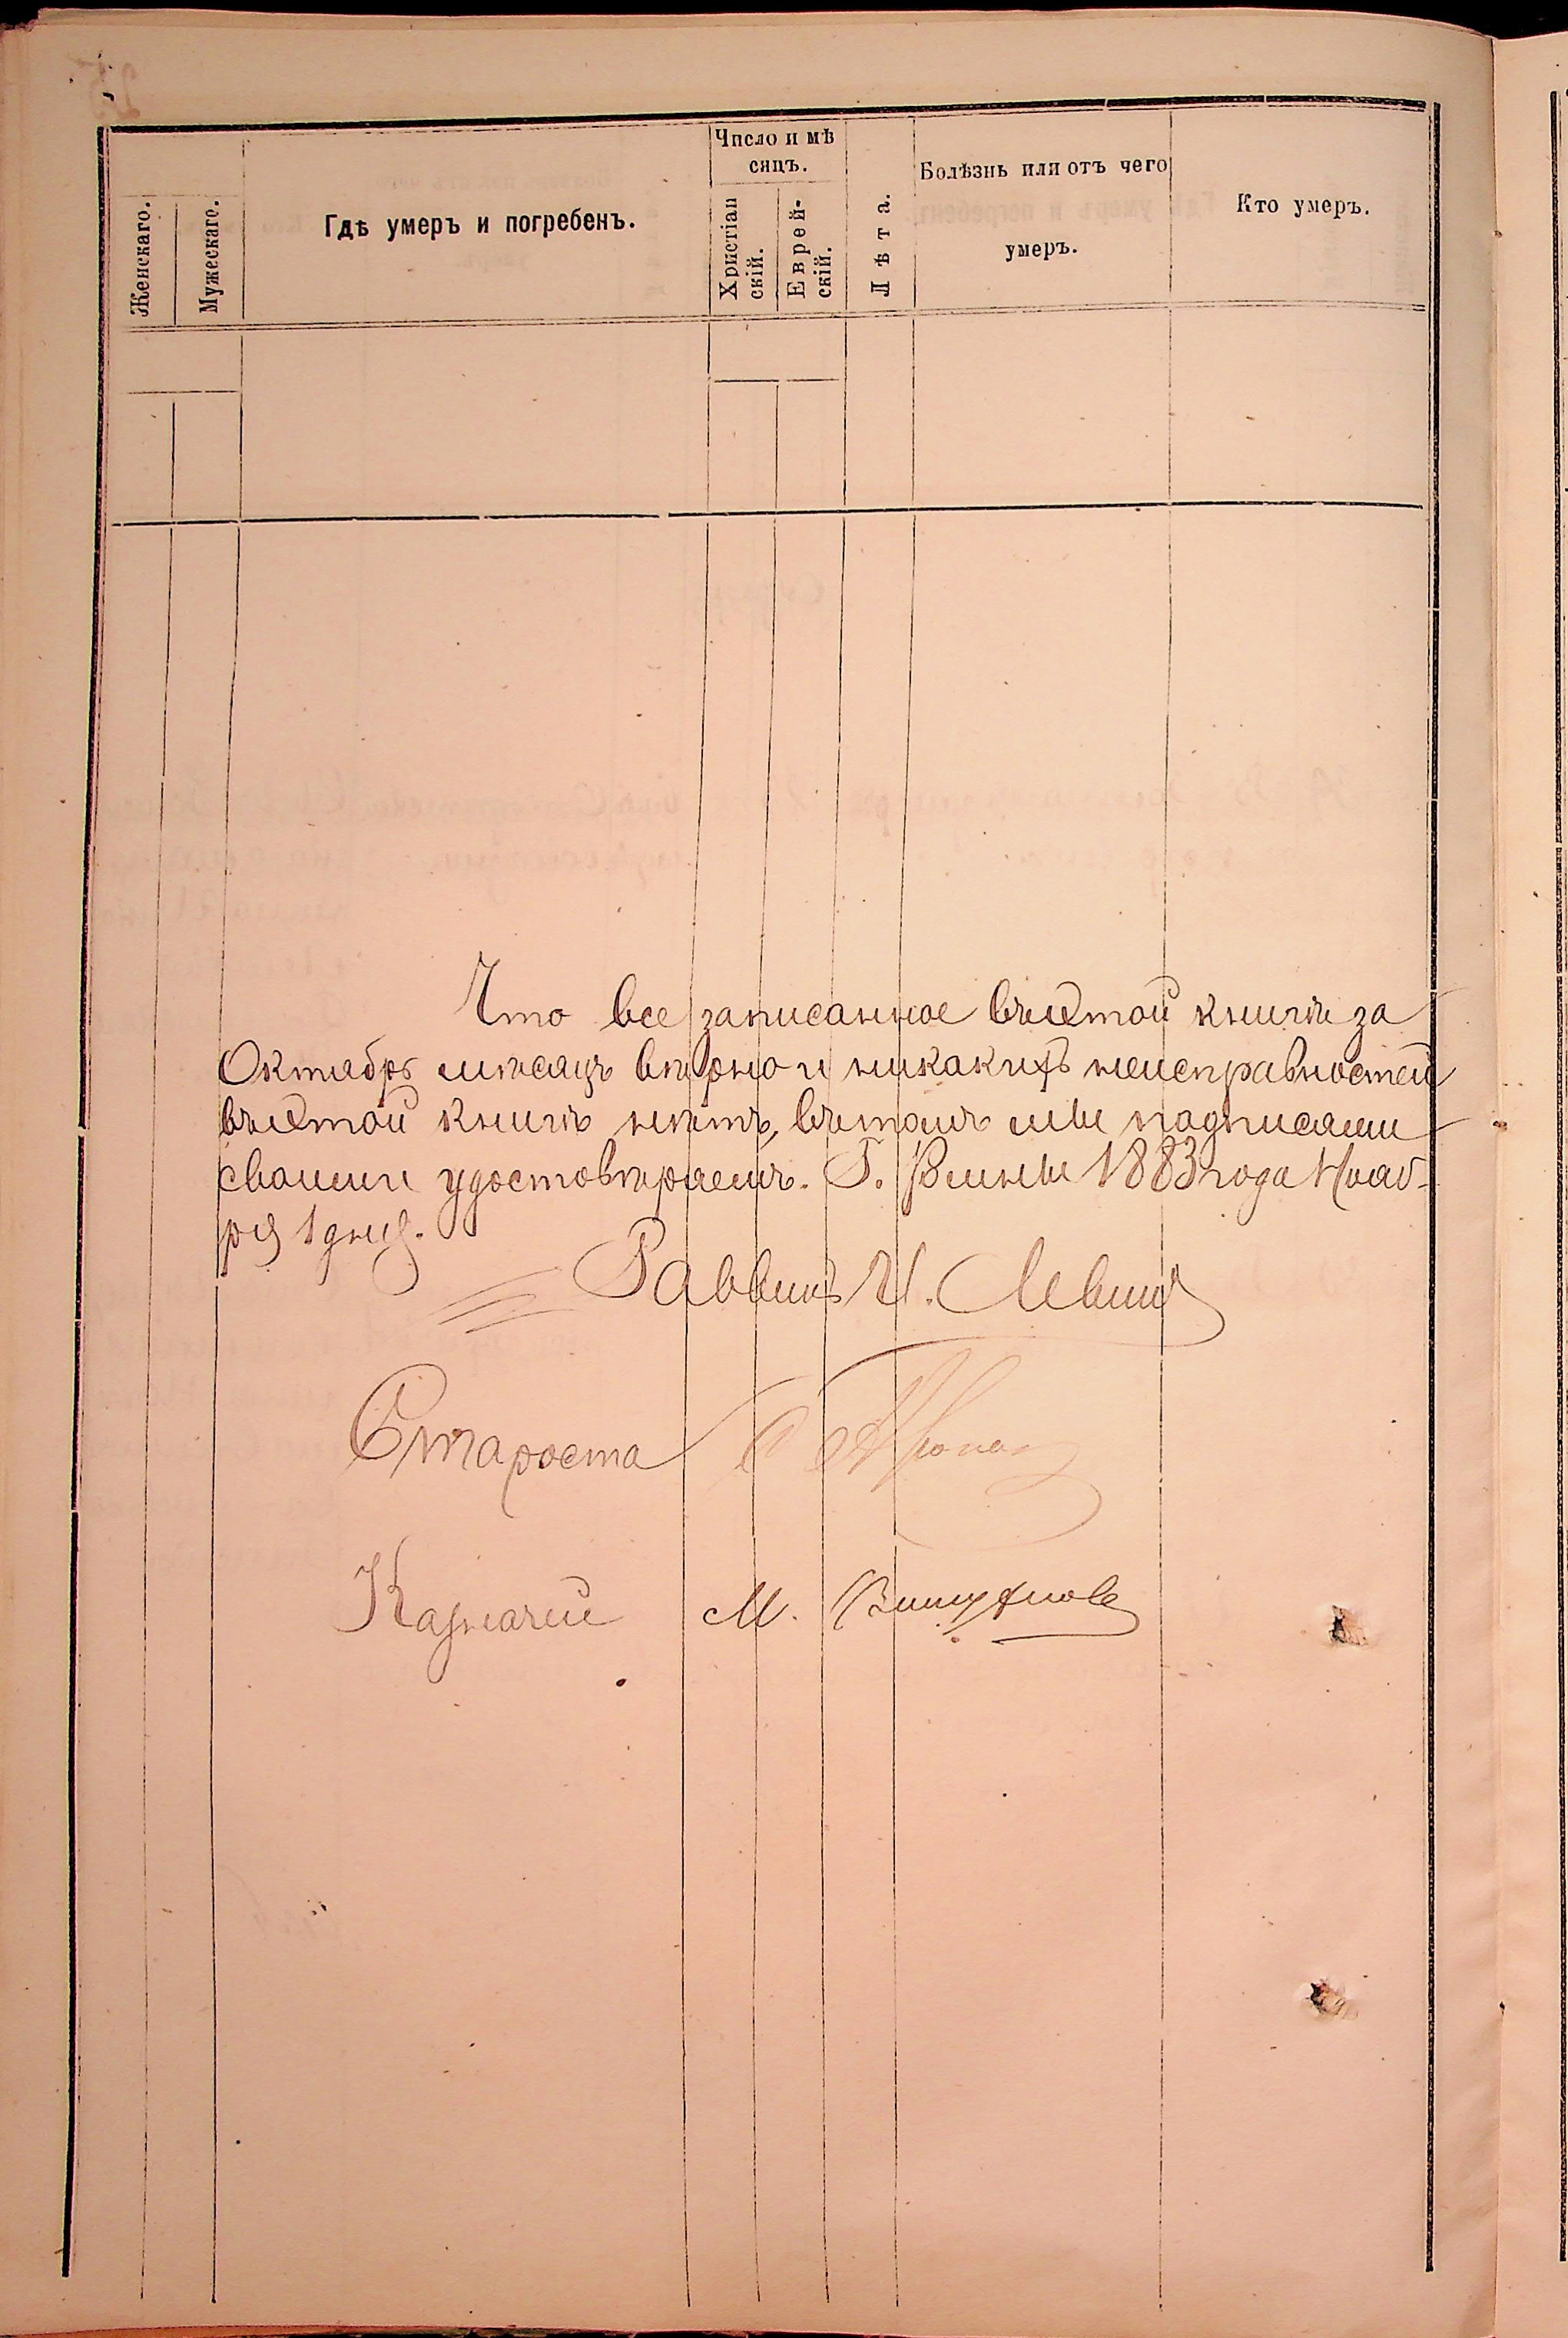 Женскаго.
Мужескаго.
Гдѣ умеръ и погребенъ.
Число и мѣ
сяцъ.
Христіан
скій.
Еврей-
скій.
Лѣта.
Болѣзнь или отъ чего
умеръ.
Кто умеръ.
Что все записанное въ етой книгѣ за
Октябрь мѣсяцъ вѣрно и никакихъ неисправностей
въ етой книгѣ нѣтъ, въ томъ мы подписами
своими удостовѣряемъ. Г. Вильны 1883 года Нояб-
ря 1 дня.
Раввинъ И. Левин
Староста
Казначей М.